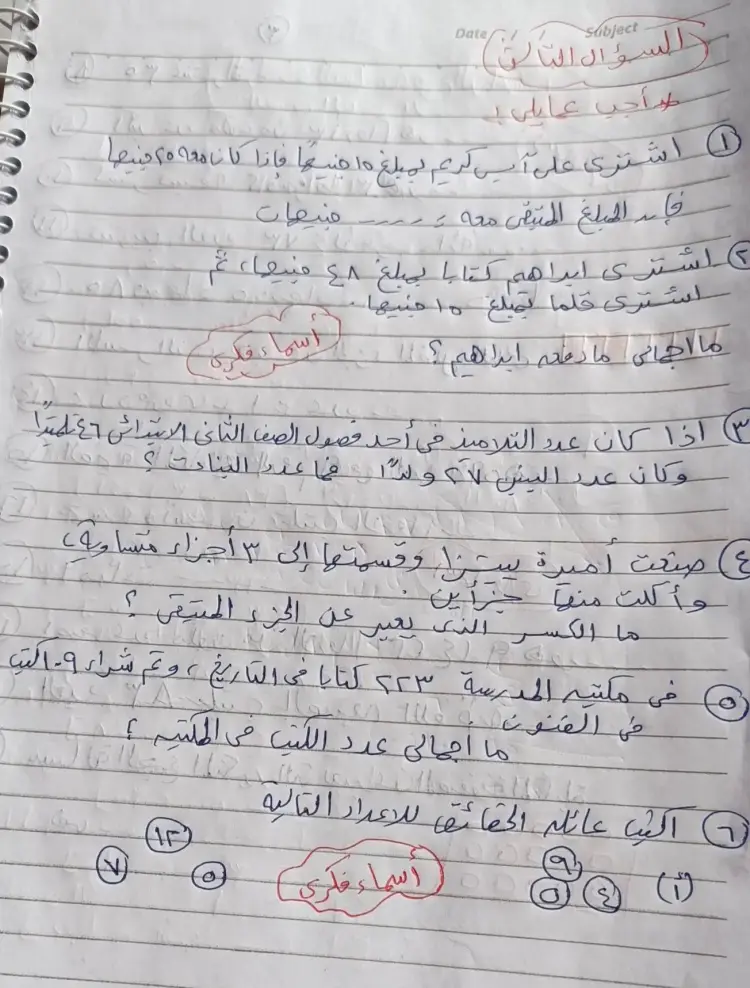 Date Subject
السؤال الثالث
* أجب عمايلى :-
١ اشترى على آيس كريم بمبلغ ١٥ جنيهًا فإذا كان معه ٢٥ جنيها
فإن المبلغ المتبقى معه = ---- جنيهات
٢ اشترى ابراهيم كتابا بمبلغ ٤٨ جنيها، ثم
اشترى قلما بمبلغ ١٥ جنيها.
ما اجمالى ما دفعه ابراهيم؟
أسماء فكرى
٣ اذا كان عدد التلاميذ فى أحد فصول الصف الثانى الابتدائى ٤٦ تلميذًا
وكان عدد البنين ٢٧ ولدًا فما عدد البنات؟
٤ صنعت أميرة بيتزا وقسمتها إلى ٣ أجزاء متساوية،
وأكلت منها جزأين.
ما الكسر الذى يعبر عن الجزء المتبقى؟
٥ فى مكتبه المدرسة ٢٢٣ كتابا فى التاريخ، وتم شراء ١٠٩ كتب
فى الفنون.
ما أجمالى عدد الكتب فى المكتبه؟
٦ اكتب عائله الحقائق للاعداد التالية
(أ) ٩ ٤ ٥
١٢ ٥ ٧
أسماء فكرى